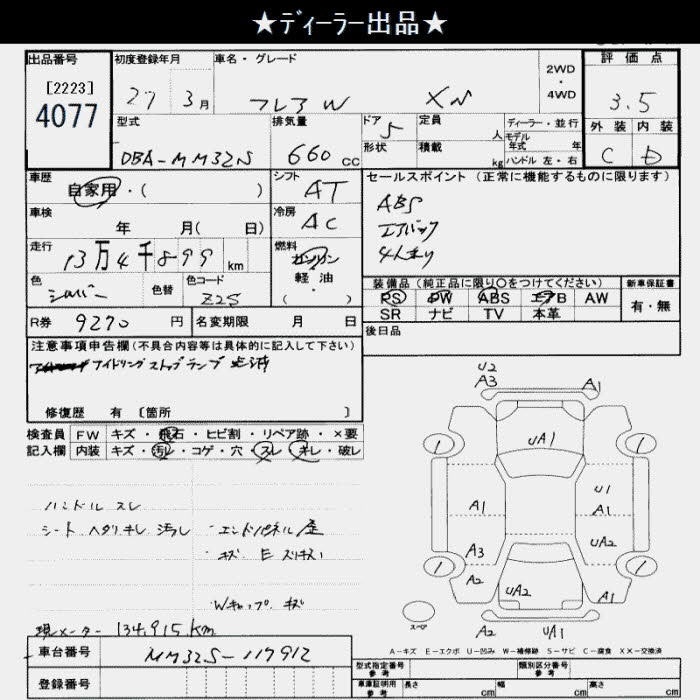 ★ディーラー出品★
出品番号 初度登録年月 車名・グレード 2WD・4WD 評価点
[2223] 4077
27 3月 フレアW XS 3.5
型式 排気量 ドア 定員 人 ディーラー・並行 外装 内装
モデル年式 年
DBA-MM32S 660cc 5 形状 積載 kg ハンドル 左・右 C D
車歴 シフト セールスポイント (正常に機能するものに限ります)
自家用・( ) AT ABS
車検 冷房 エアバック
年 月( 日) AC 4人乗り
走行 燃料
13万4千899km ガソリン
軽油
・( )
色 色替 色コード 装備品 (純正品に限り○をつけてください) 新車保証書
シルバー Z2S PS PW ABS エアB AW 有・無
SR ナビ TV 本革
R券 9270円 名変期限 月 日 後日品
注意事項申告欄(不具合内容等は具体的に記入して下さい)
アイドリングストップランプ 点滅
修復歴 有 [箇所 ]
検査員 FW キズ・飛石・ヒビ割・リペア跡・×要
記入欄 内装 キズ・汚レ・コゲ・穴・スレ・キレ・破レ
ハンドル スレ
シート ヘタリ キレ 汚レ ・エンドパネル 歪
・キズ E スリキズ
・Wキャップ キズ
現メーター 134,915Km
車台番号 MM32S-117912
登録番号
U2
A3 A1
UA1
A1 U1
A1
A3 UA2
A2 UA2 A1
1 1
1 1
スペア
A2 UA1
A-キズ E-エクボ U-凹み W-補修跡 S-サビ C-腐食 XX-交換済
型式指定番号 参考 類別区分番号 参考
車庫証明用 参考 長さ cm 幅 cm 高さ cm